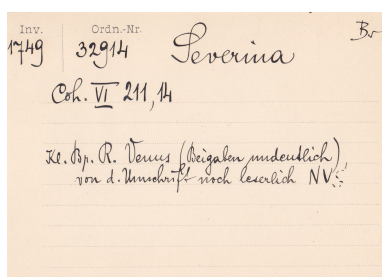 Inv. Ordn.-Nr.
1749 32914 Severina Br
Coh. VI 211,14
Kl. Br. R. Venus (Beigaben undeutlich),
von d. Umschrift noch leserlich NV